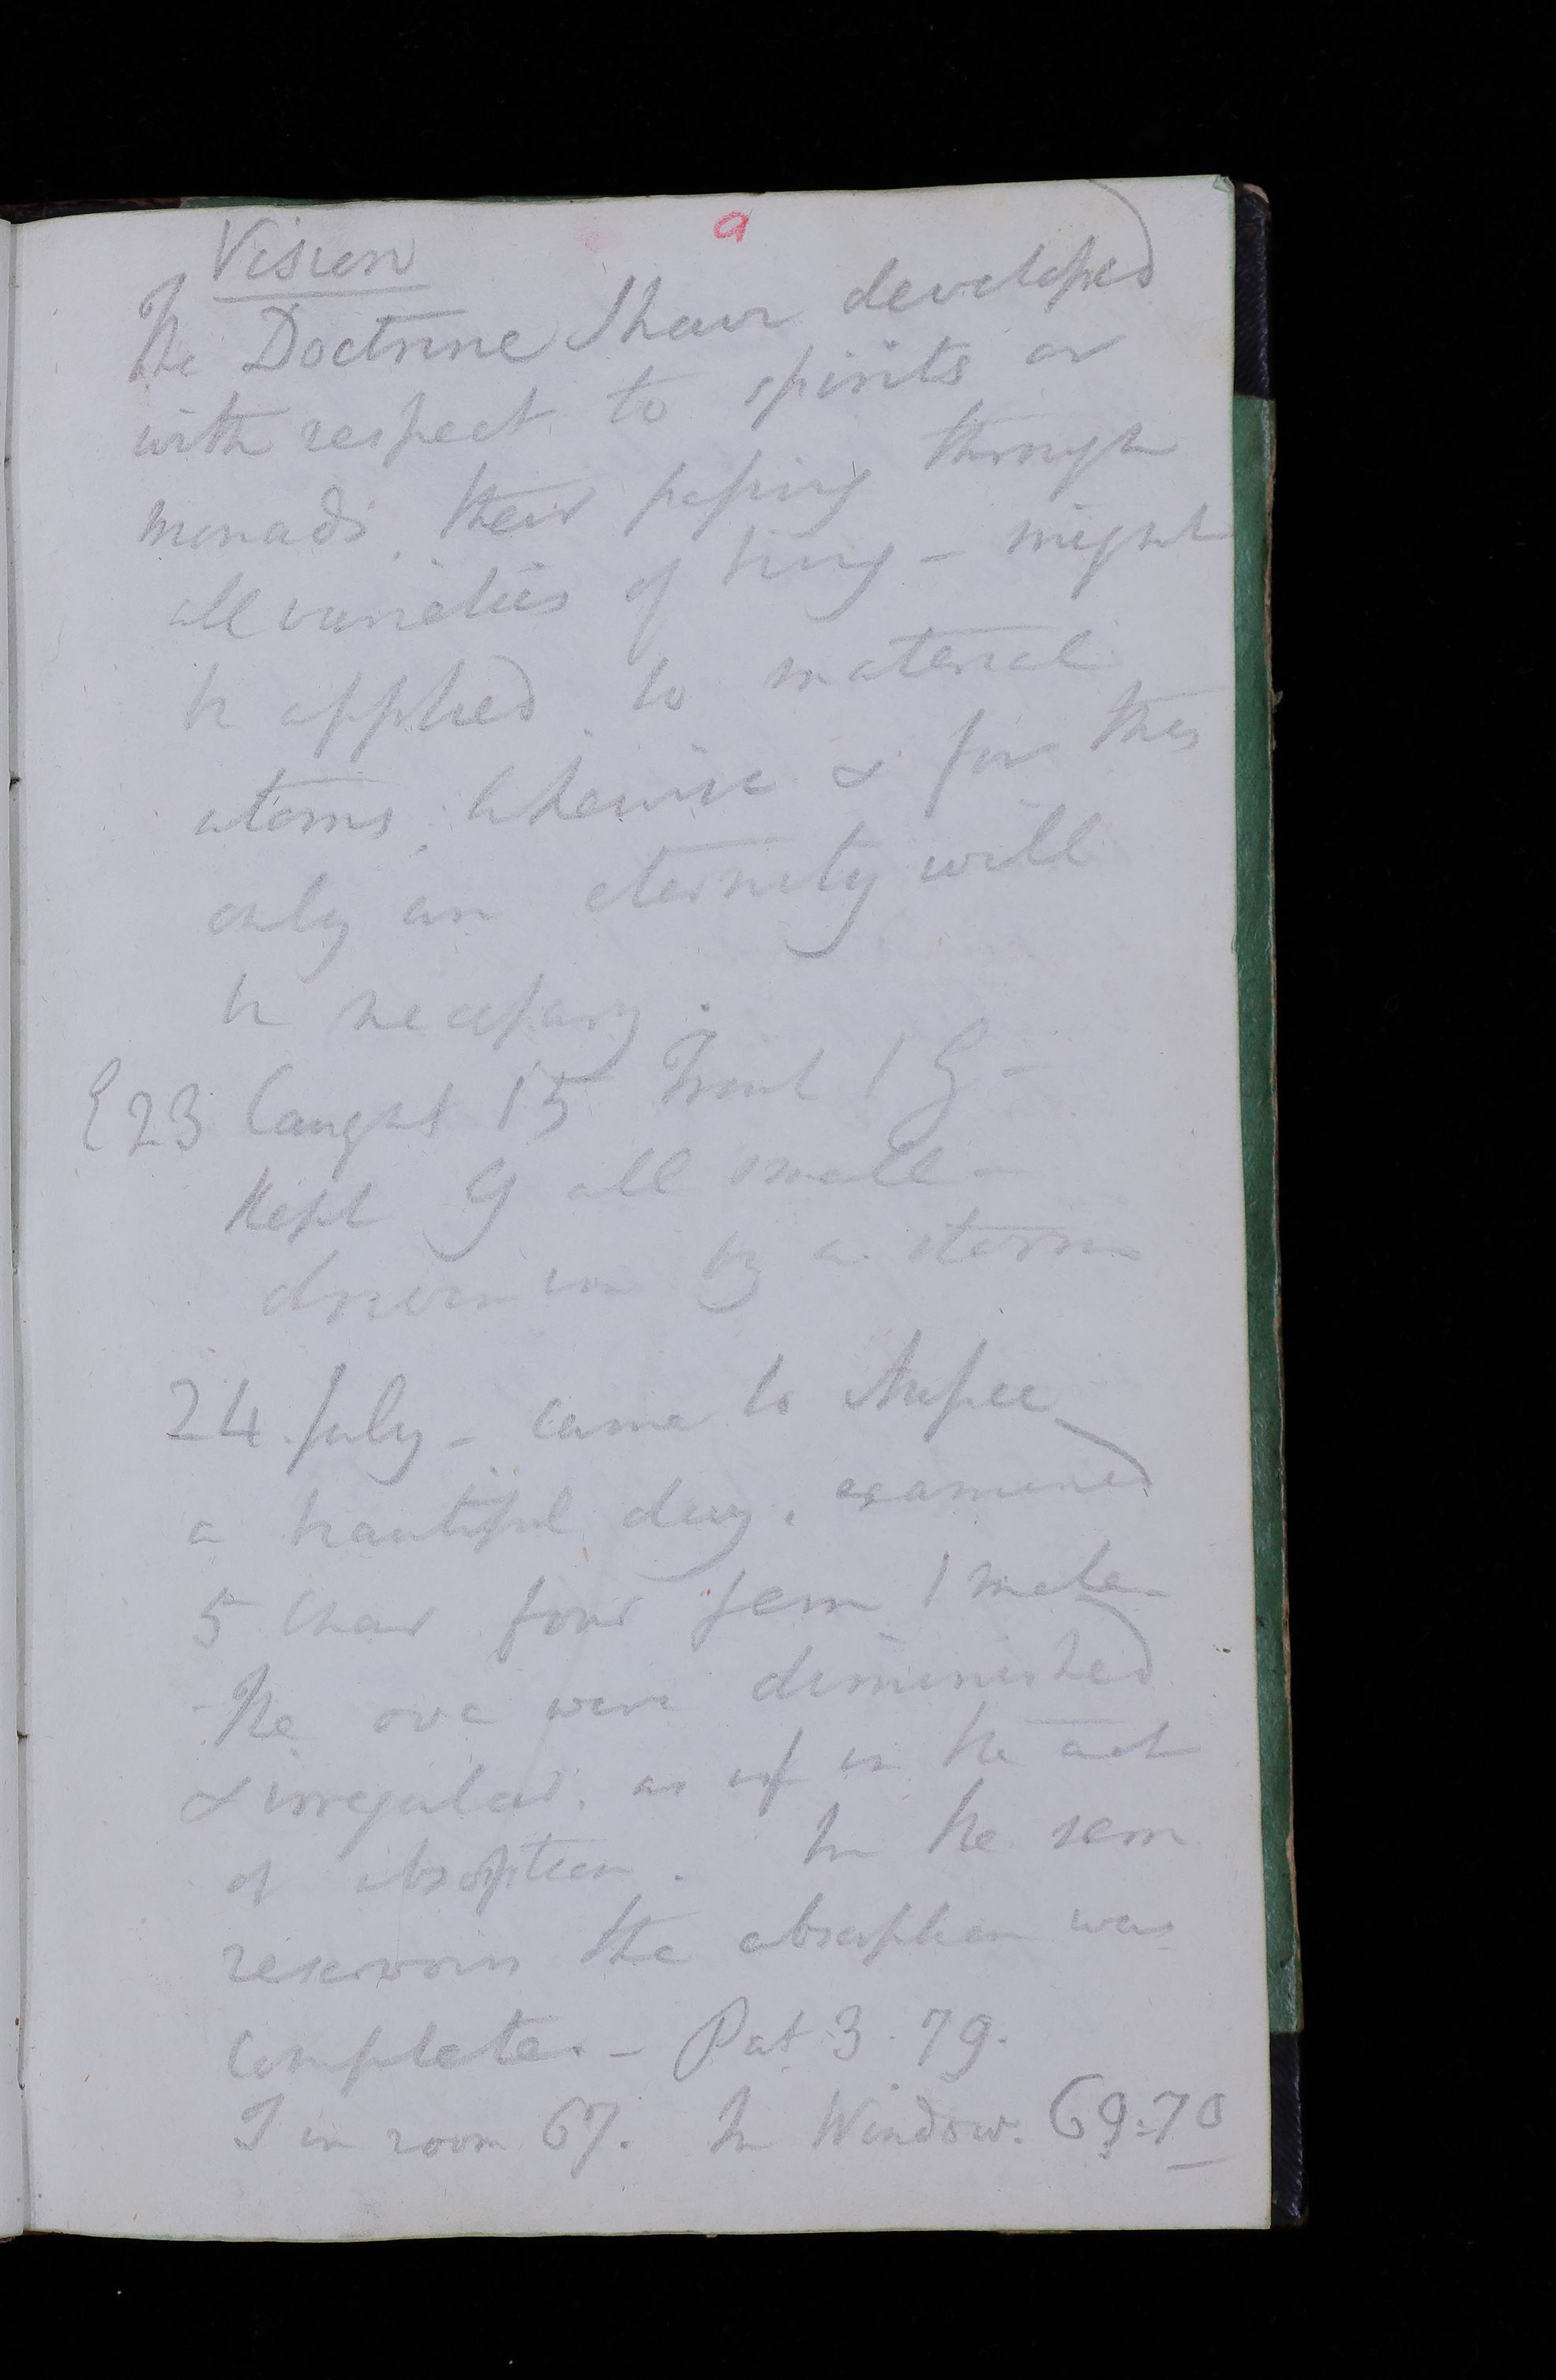 9
Vision
The Doctrine I have developed
with respect to spirits or
monads, their passing through
all varieties of being - might
be applied to material
atoms likewise & for this
only an eternity will
be necessary.
23 Caught 15 Trout 1 G -
Kept 9 all small -
driven in by a storm
24 July - came to Aussee
a beautiful day. examined
5 char four fem 1 male
The ova were diminished
& irregular. as if in the act
of absorption. In the sem
reservoirs the absorption was
complete. - Pat 3. 79.
T in room 67. In Window. 69.70